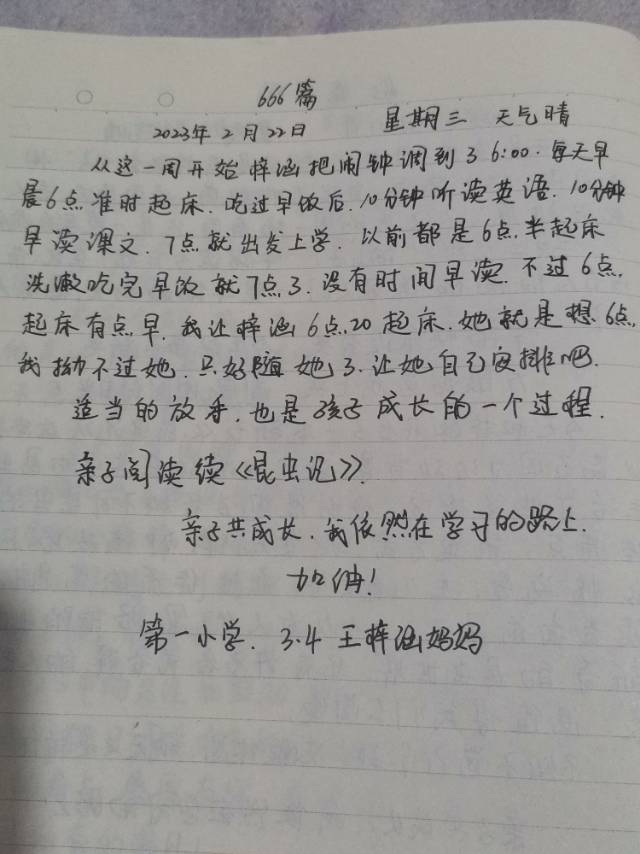 666篇
2023年2月22日 星期三 天气晴
从这一周开始梓涵把闹钟调到了6:00.每天早
晨6点准时起床.吃过早饭后.10分钟听读英语.10分钟
早读课文.7点就出发上学.以前都是6点半起床
洗漱吃完早饭就7点了.没有时间早读.不过6点.
起床有点早.我让梓涵6点20起床.她就是想6点.
我拗不过她.只好随她了.让她自己安排吧.
适当的放手.也是孩子成长的一个过程.
亲子阅读续《昆虫记》.
亲子共成长.我依然在学习的路上.
加油!
第一小学.3.4王梓涵妈妈